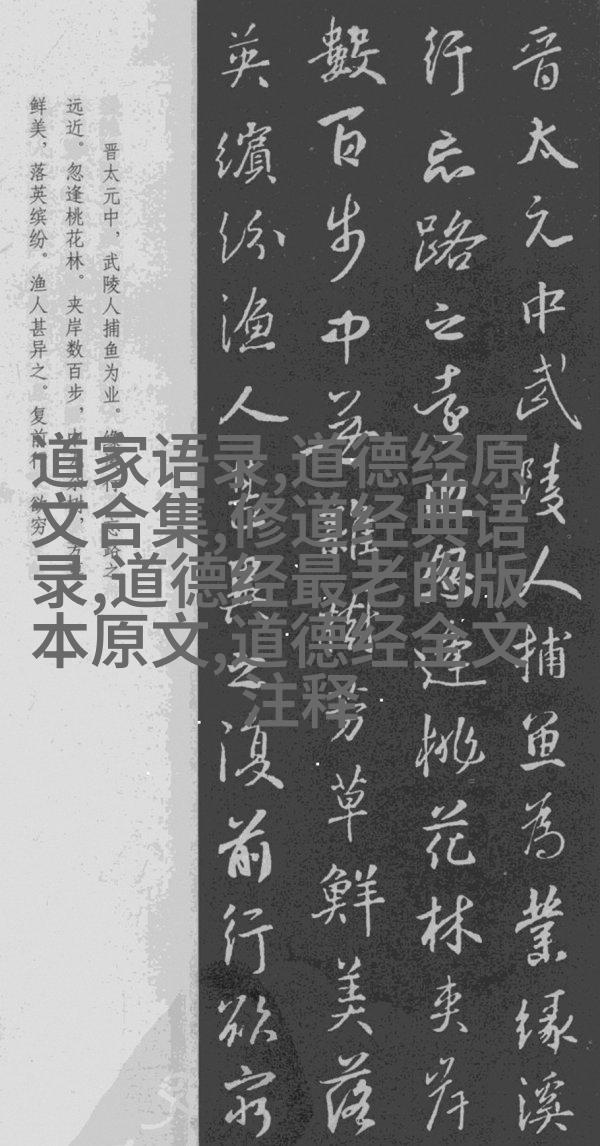 晋太元中武陵人捕魚為業緣溪
行忘路之遠近忽逢桃花林夾岸
數百步中無雜樹芳草鮮美落
英繽紛漁人甚異之復前行欲窮
晋太元中，武陵人捕鱼为业。缘溪行，忘路之
远近。忽逢桃花林。夹岸数百步，中无杂树，芳
鲜美，落英缤纷。渔人甚异之。复前行，欲穷
道家语录,道德经原
文合集,修道经典语
录,道德经最老的版
本原文,道德经全文
注释